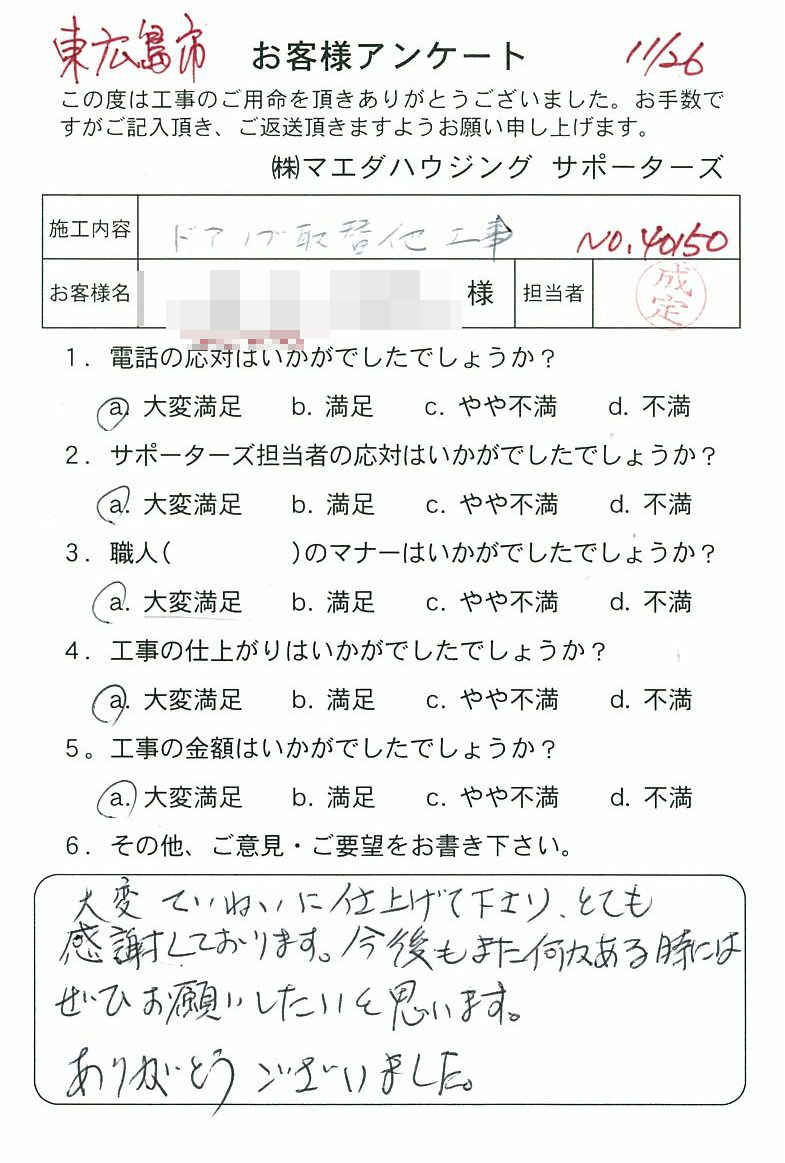 東広島市 お客様アンケート 11/26
この度は工事のご用命を頂きありがとうございました。お手数で
すがご記入頂き、ご返送頂きますようお願い申し上げます。
㈱マエダハウジング サポーターズ
施工内容 ドアノブ取替他工事 NO.40150
お客様名 様 担当者 成定
1. 電話の応対はいかがでしたでしょうか？
a. 大変満足 b. 満足 c. やや不満 d. 不満
2. サポーターズ担当者の応対はいかがでしたでしょうか？
a. 大変満足 b. 満足 c. やや不満 d. 不満
3. 職人( )のマナーはいかがでしたでしょうか？
a. 大変満足 b. 満足 c. やや不満 d. 不満
4. 工事の仕上がりはいかがでしたでしょうか？
a. 大変満足 b. 満足 c. やや不満 d. 不満
5。工事の金額はいかがでしたでしょうか？
a. 大変満足 b. 満足 c. やや不満 d. 不満
6. その他、ご意見・ご要望をお書き下さい。
大変ていねいに仕上げて下さり、とても
感謝しております。今後もまた何かある時には
ぜひお願いしたいと思います。
ありがとうございました。